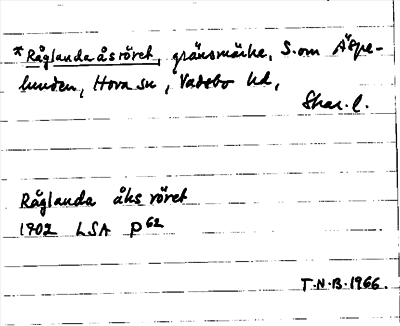 *Råglanda åsröret, gränsmärke, S.om Äspe-
lunden, Hova sn, Vadsbo hd,
Skar. l.
Råglanda åhs röret
1702 LSA P62
T.N.B.1966.